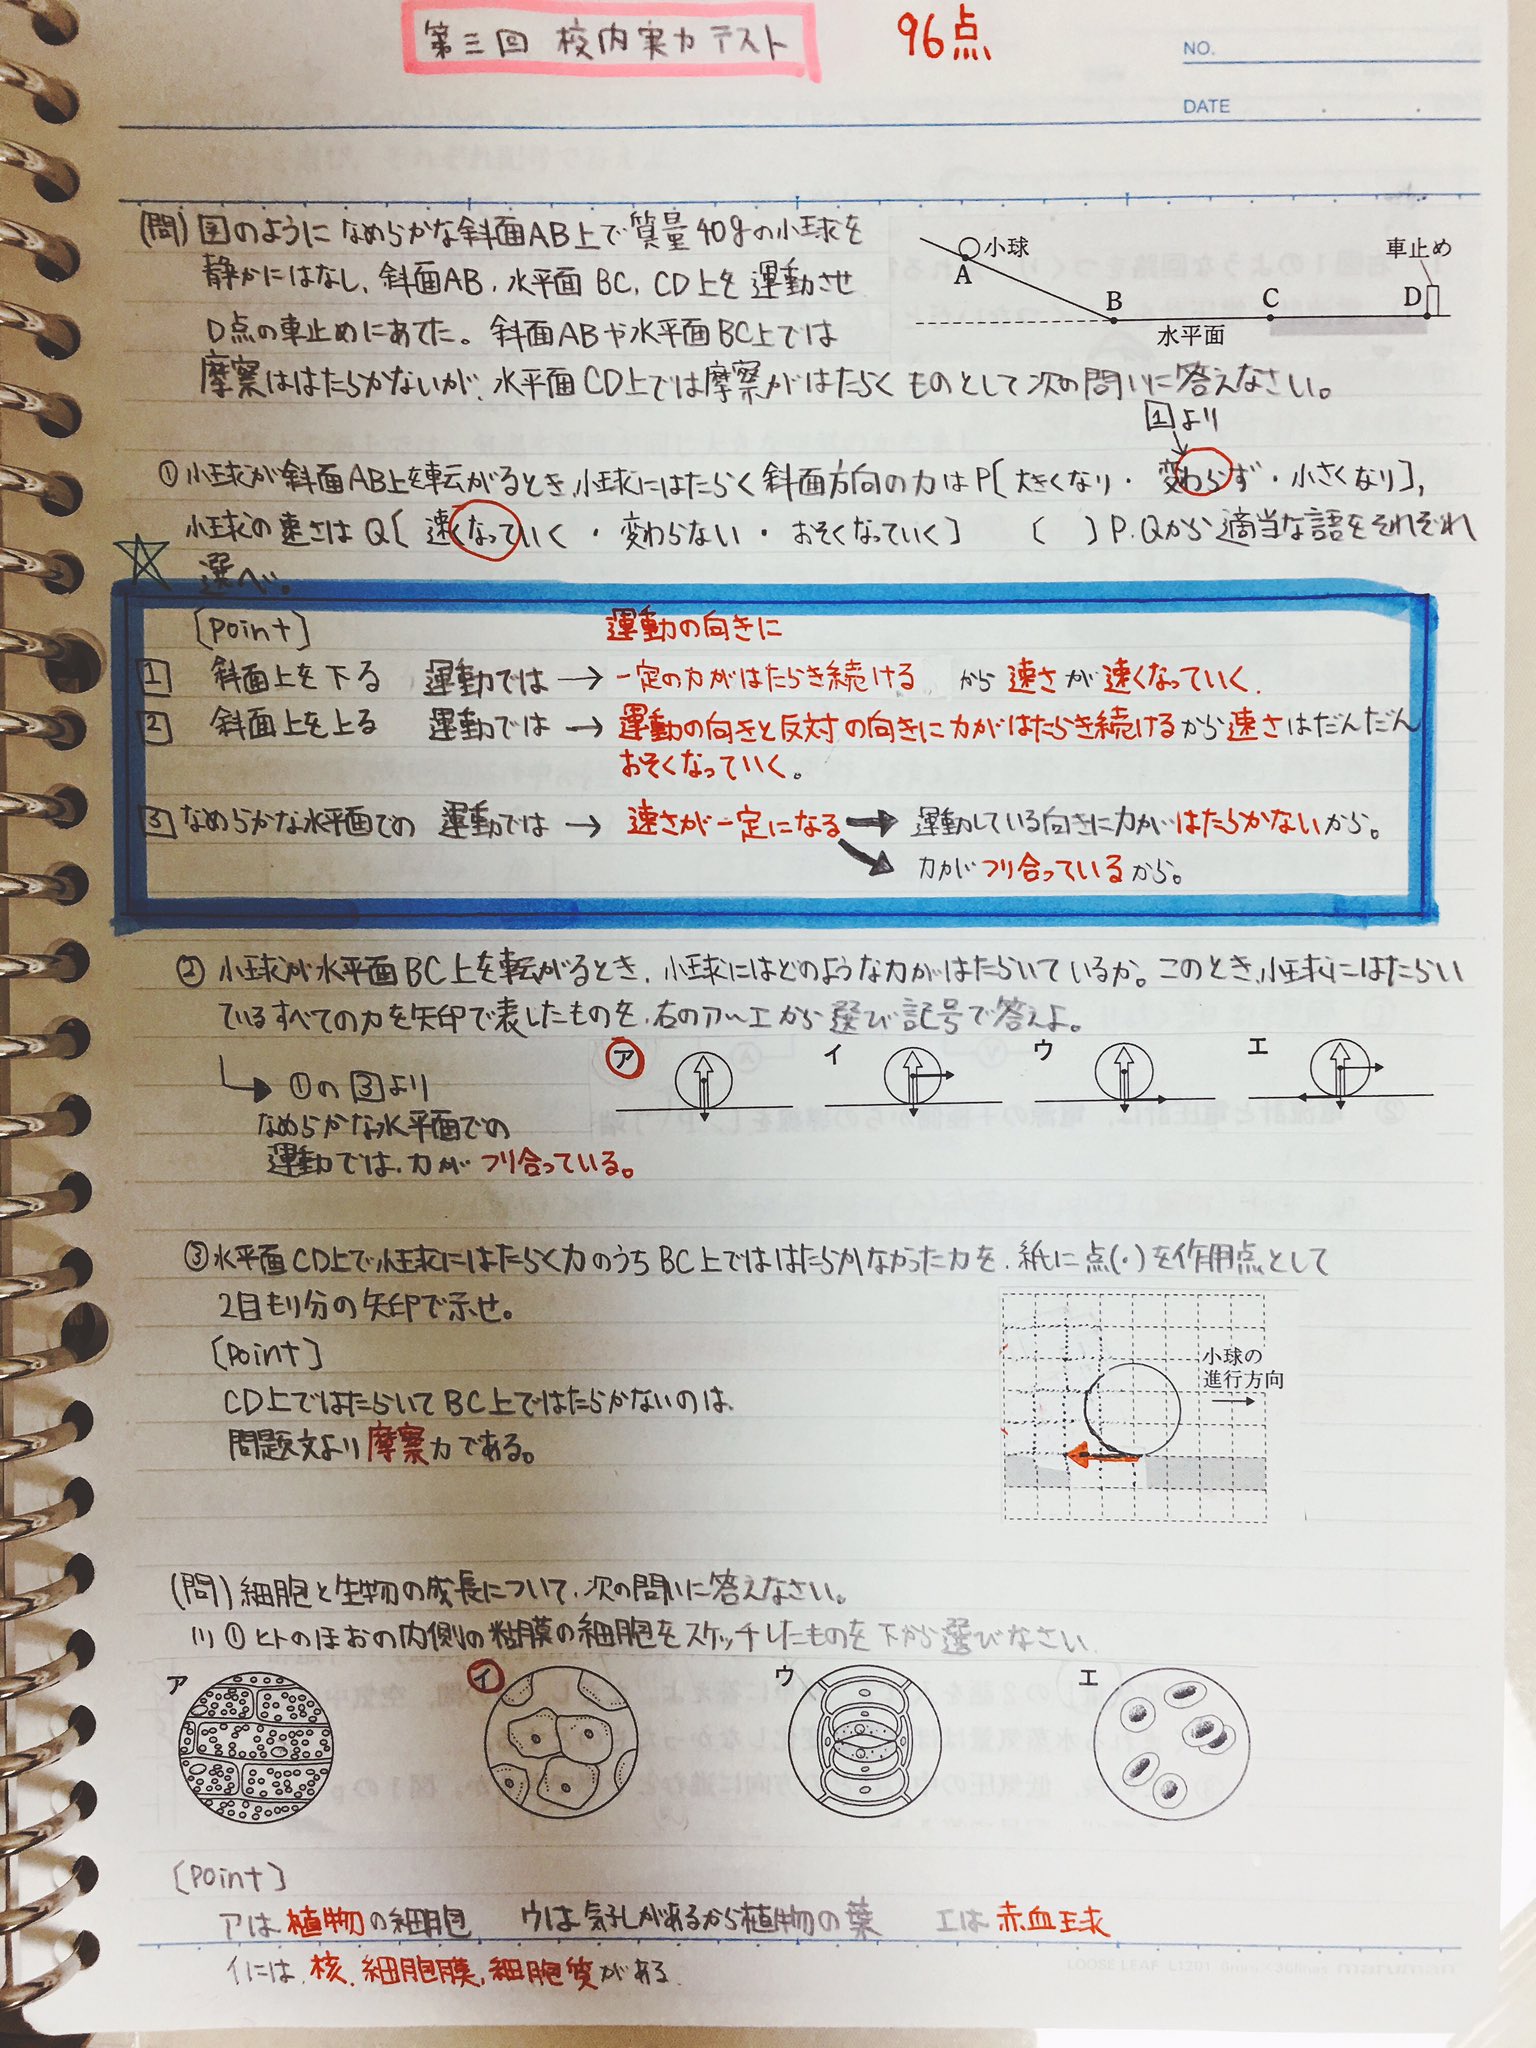 第三回 校内実力テスト
96点
NO.
DATE
(問) 図のように なめらかな斜面AB上で質量40gの小球を
静かにはなし、斜面AB、水平面BC、CD上を運動させ
D点の車止めにあてた。斜面ABや水平面BC上では
摩察ははたらかないが、水平面CD上では摩察がはたらくものとして次の問いに答えなさい。
小球
A
B
C
D
車止め
水平面
1より
①小球が斜面AB上を転がるとき、小球にはたらく斜面方向の力はP[大きくなり・変わらず・小さくなり],
小球の速さはQ[速くなっていく・変わらない・おそくなっていく] ( )P.Qから適当な語をそれぞれ
選べ。
[Point]
運動の向きに
1 斜面上を下る 運動では → 一定の力がはたらき続ける から 速さが速くなっていく.
2 斜面上を上る 運動では → 運動の向きと反対の向きに力がはたらき続けるから速さはだんだん
おそくなっていく。
3 なめらかな水平面での 運動では → 速さが一定になる → 運動している向きに力がはたらかないから。
力がつり合っているから。
② 小球が水平面BC上を転がるとき、小球にはどのような力がはたらいているか。このとき、小球にはたらい
ているすべての力を矢印で表したものを、右のア〜エから選び記号で答えよ。
ア イ ウ エ
→ ①の3より
なめらかな水平面での
運動では、力がつり合っている。
③水平面CD上で小球にはたらく力のうちBC上でははたらかなかった力を、紙に点(・)を作用点として
2目もり分の矢印で示せ。
[Point]
CD上ではたらいてBC上ではたらかないのは、
問題文より摩察力である。
小球の
進行方向
(問)細胞と生物の成長について、次の問いに答えなさい。
(1) ①ヒトのほおの内側の粘膜の細胞をスケッチしたものを下から選びなさい.
ア イ ウ エ
[Point]
アは植物の細胞 ウは気孔があるから植物の葉 エは赤血球
イには、核、細胞膜、細胞質がある.
LOOSE LEAF L1201 6mm×36lines maruman